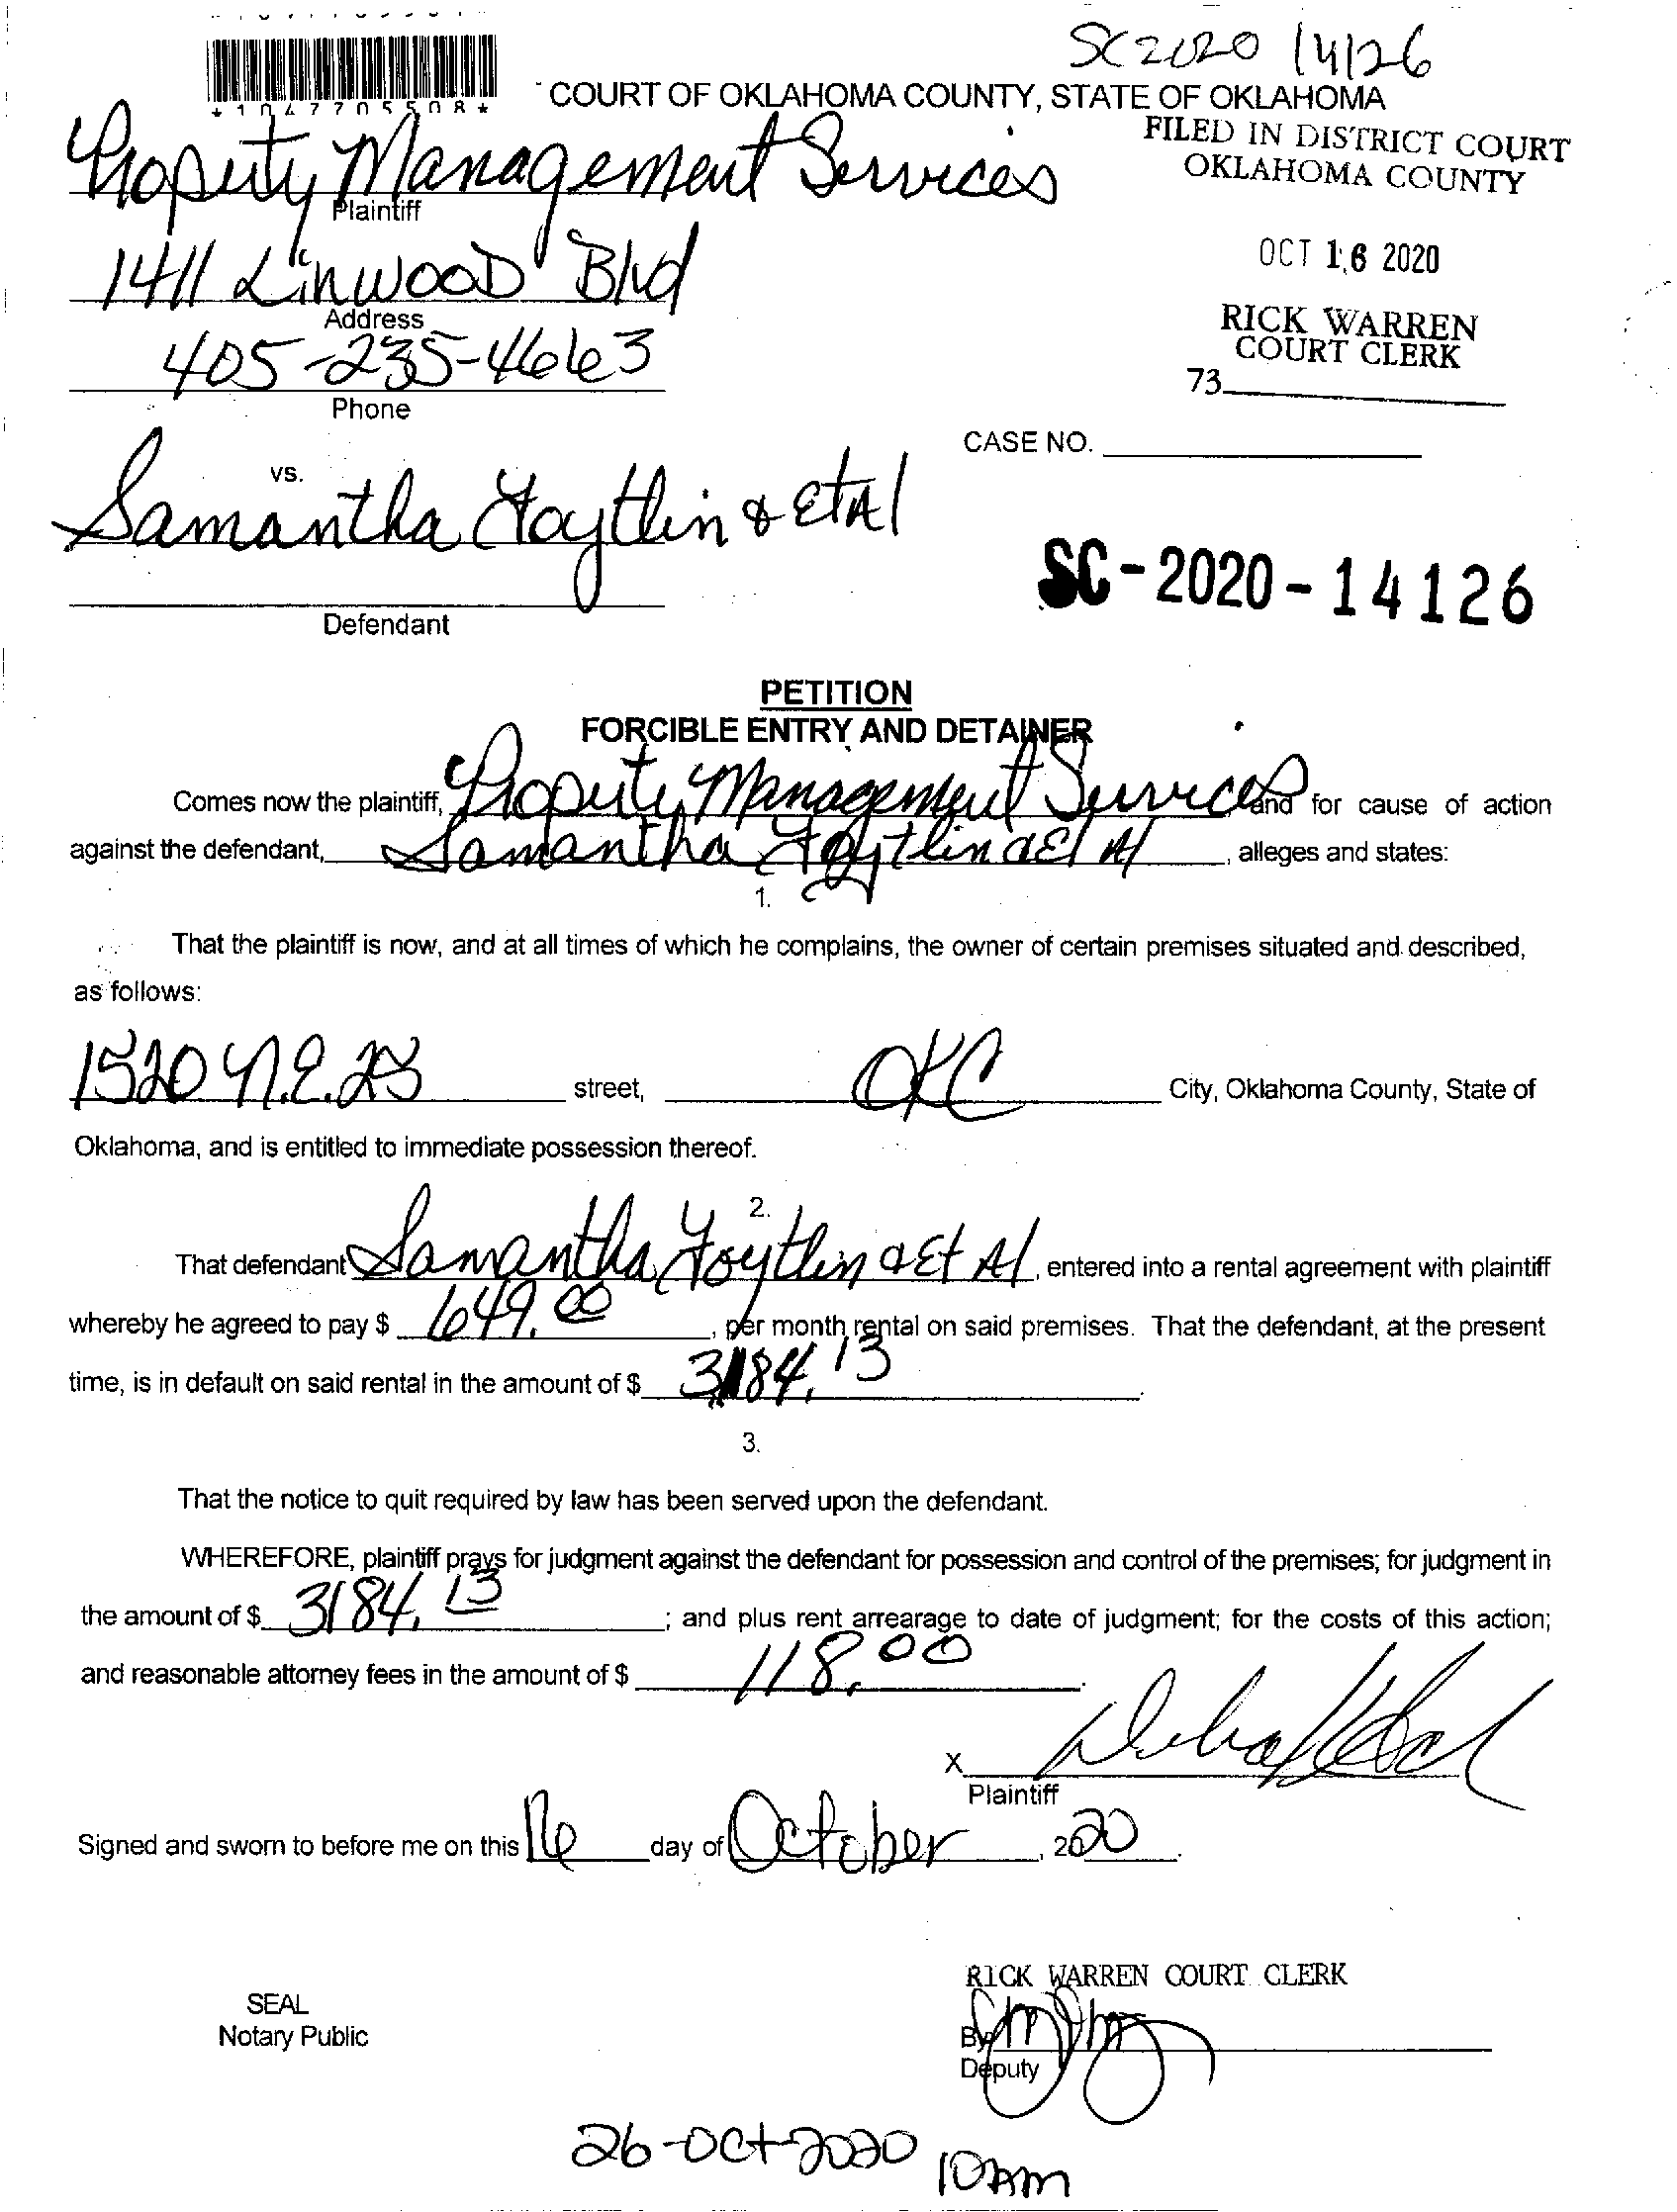 SC 2020 14126
*1047705508*
COURT OF OKLAHOMA COUNTY, STATE OF OKLAHOMA
FILED IN DISTRICT COURT
OKLAHOMA COUNTY
Property Management Services
Plaintiff
OCT 16 2020
1411 Linwood Blvd
Address
RICK WARREN
COURT CLERK
405-235-4663
Phone
73
CASE NO.
vs.
Samantha Foytlin & Et Al
SC-2020-14126
Defendant
PETITION
FORCIBLE ENTRY AND DETAINER
Comes now the plaintiff, Property Management Services and for cause of action
against the defendant, Samantha Foytlin & Et Al, alleges and states:
1.
That the plaintiff is now, and at all times of which he complains, the owner of certain premises situated and described,
as follows:
1520 N.E. 23 street, OKC City, Oklahoma County, State of
Oklahoma, and is entitled to immediate possession thereof.
2.
That defendant Samantha Foytlin & Et Al, entered into a rental agreement with plaintiff
whereby he agreed to pay $ 649.00, per month rental on said premises. That the defendant, at the present
time, is in default on said rental in the amount of $ 3184.13.
3.
That the notice to quit required by law has been served upon the defendant.
WHEREFORE, plaintiff prays for judgment against the defendant for possession and control of the premises; for judgment in
the amount of $ 3184.13; and plus rent arrearage to date of judgment; for the costs of this action;
and reasonable attorney fees in the amount of $ 118.00.
X
Plaintiff
Signed and sworn to before me on this 16 day of October, 2020.
RICK WARREN COURT CLERK
SEAL
Notary Public
By
Deputy
26-Oct-2020 10AM